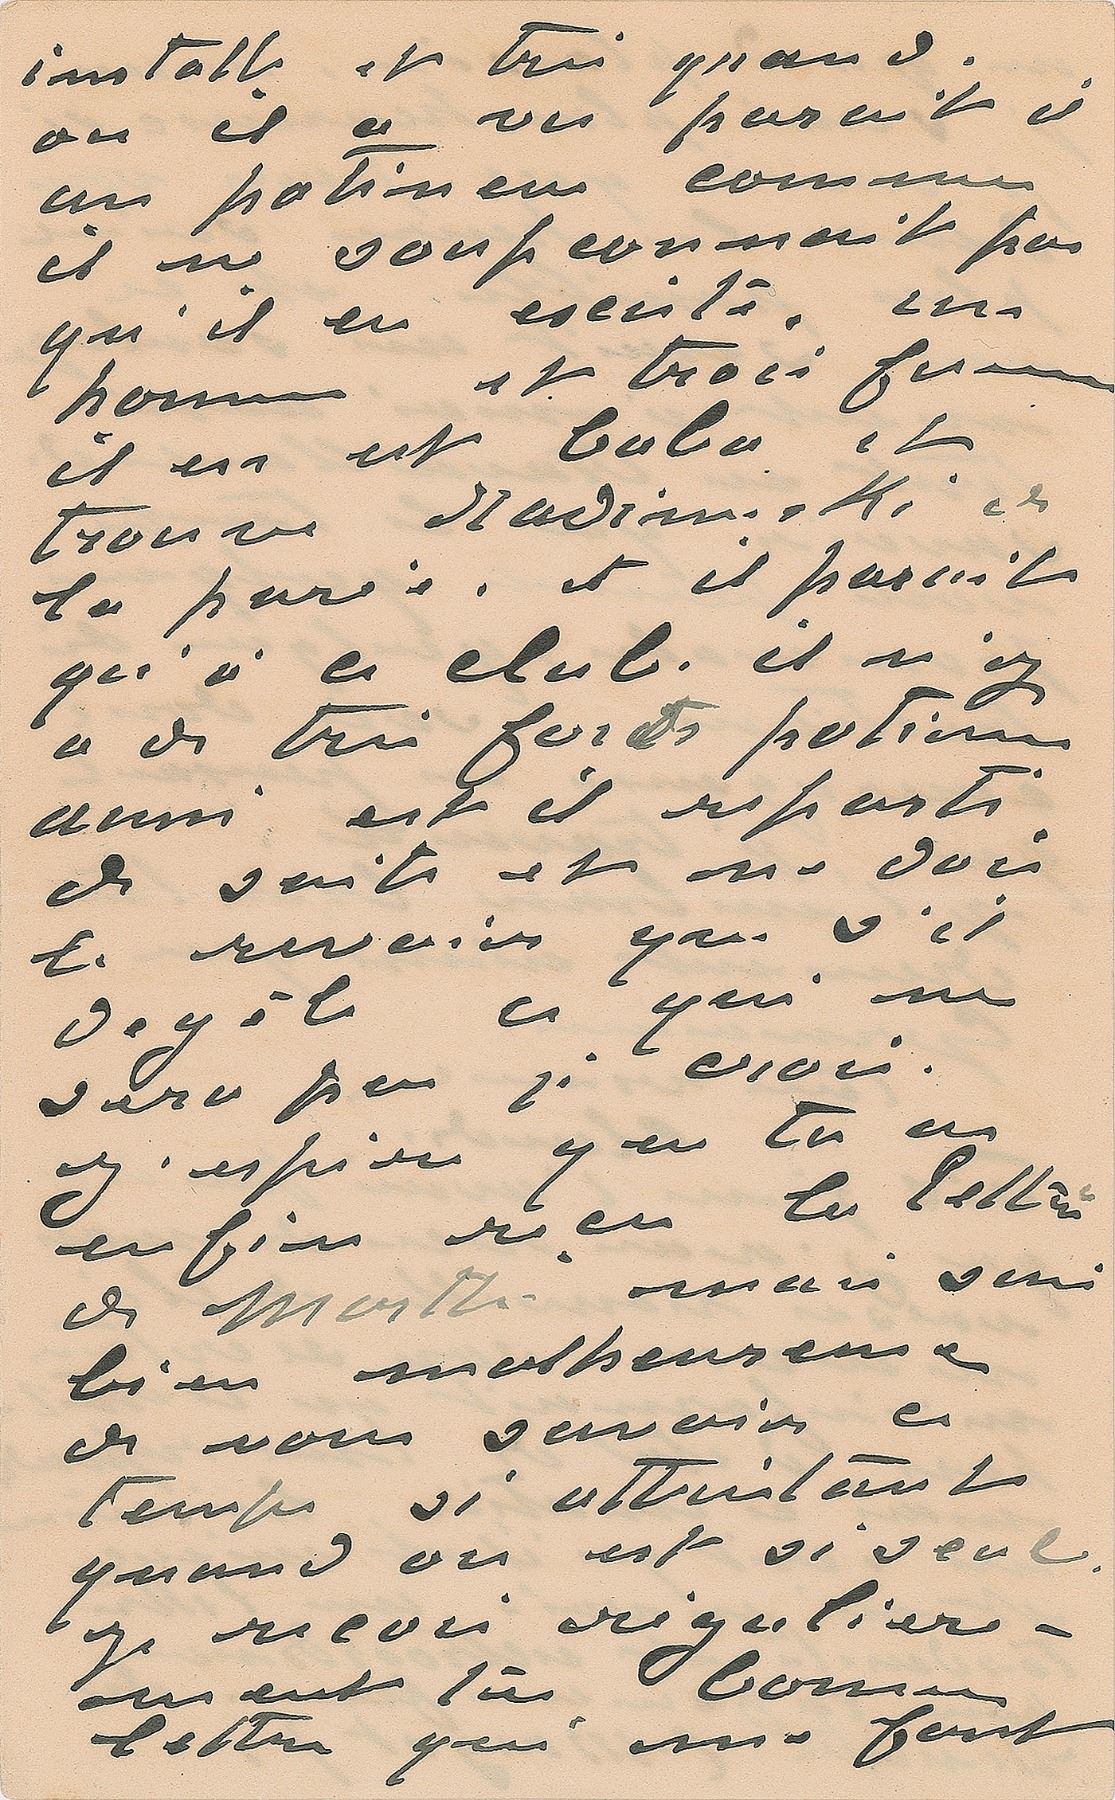 installé et très grand.
ou il a vu parait il
un patineur comme
il ne soupconnait pas
qu'il en existe. un
homme et trois femmes
il en est baba et
trouve de
la parodie. et il parait
qu'à ce club. il n'y
a de très forts patineurs
aussi est il reparti
de suite et ne doit
le revoir que s'il
dégèle ce qui ne
sera pas je crois.
j'espère que tu as
enfin reçu la lettre
de Marthe mais suis
bien malheureuse
de vous savoir ce
temps si attristant
quand on est si seul.
je recois régulière-
ment tes bonnes
lettres qui me font